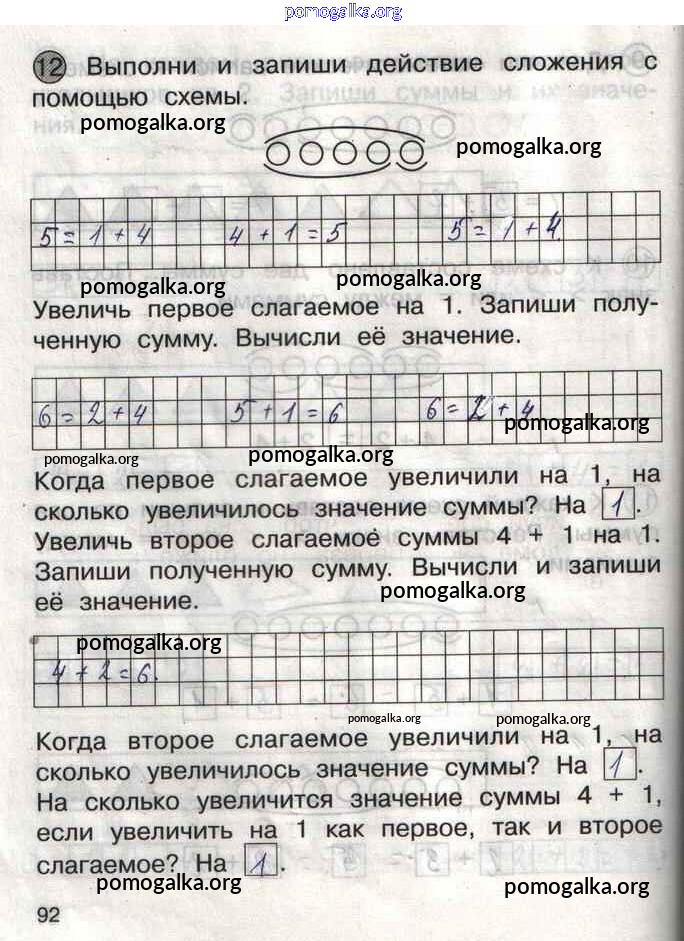 pomogalka.org
12 Выполни и запиши действие сложения с
помощью схемы.
pomogalka.org
pomogalka.org
5 = 1 + 4 4 + 1 = 5 5 = 1 + 4
pomogalka.org pomogalka.org
Увеличь первое слагаемое на 1. Запиши полу-
ченную сумму. Вычисли её значение.
6 = 2 + 4 5 + 1 = 6 6 = 2 + 4
pomogalka.org
pomogalka.org pomogalka.org
Когда первое слагаемое увеличили на 1, на
сколько увеличилось значение суммы? На 1.
Увеличь второе слагаемое суммы 4 + 1 на 1.
Запиши полученную сумму. Вычисли и запиши
её значение.
pomogalka.org
pomogalka.org
4 + 2 = 6.
pomogalka.org pomogalka.org
Когда второе слагаемое увеличили на 1, на
сколько увеличилось значение суммы? На 1.
На сколько увеличится значение суммы 4 + 1,
если увеличить на 1 как первое, так и второе
слагаемое? На 1.
pomogalka.org pomogalka.org
92